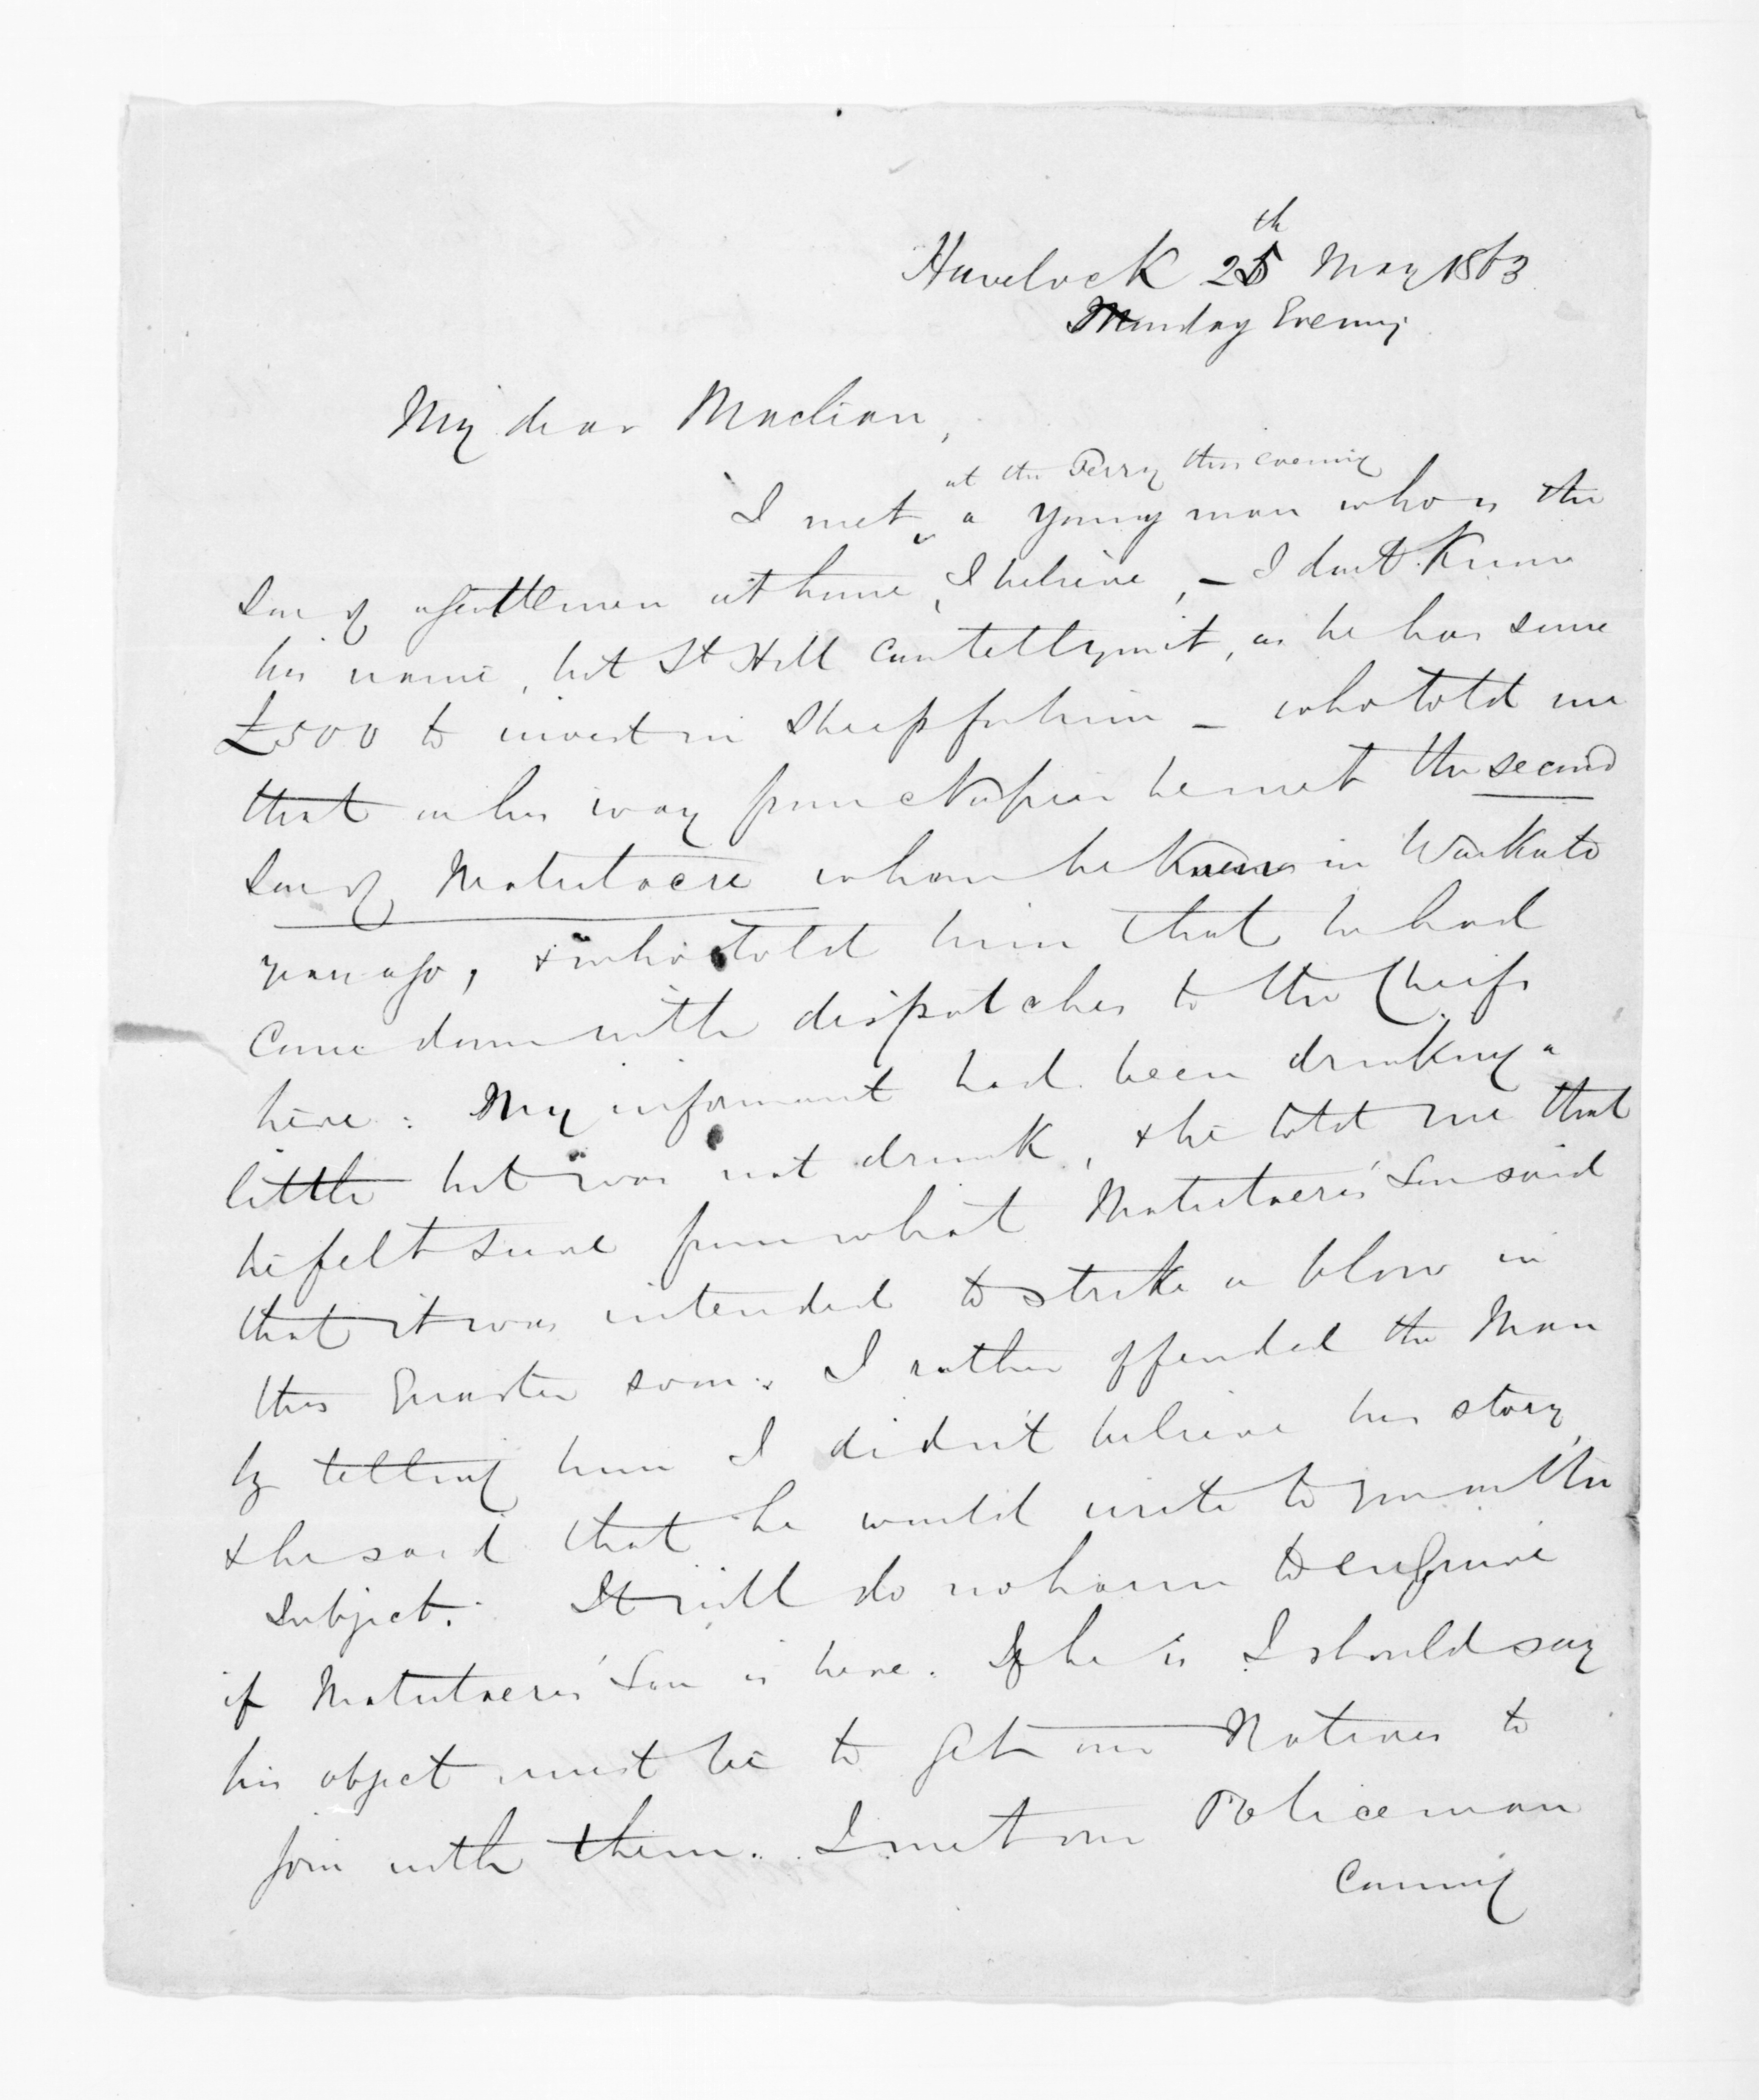 Havelock 25th May 1863
Monday Evening
My dear Maclean,
at the Ferry this evening
I met a young man who is the
Son of a gentleman at home, I believe, - I don't Know
his name, but St Hill can tell you it, as he has some
£500 to invest in Sheep for him - who told me
that on his way from Napier he met the second
Son of Matutaere whom he Knew in Waikato
years ago, & who told him that he had
Come down with dispatches to the Cheifs
here: My informant had been drinking a
little but was not drunk, & he told me that
he felt sure from what Matutaeres' Son said
that it was intended to strike a blow in
this Quarter soon. I rather offended the Man
by telling him I didn't believe his story,
& he said that he would write to you on the
Subject. It will do no harm to enquire
if Matutaeres' Son is here. If he is I should say
his object must be to get our Natives to
join with them. I met our Policeman
Coming